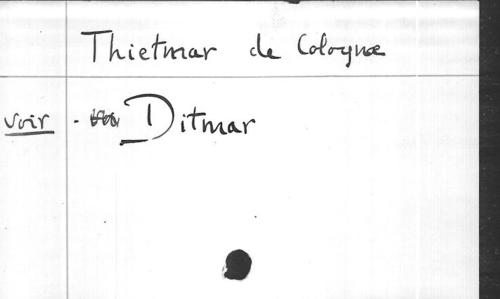 Thietmar de Cologne
voir - Ditmar